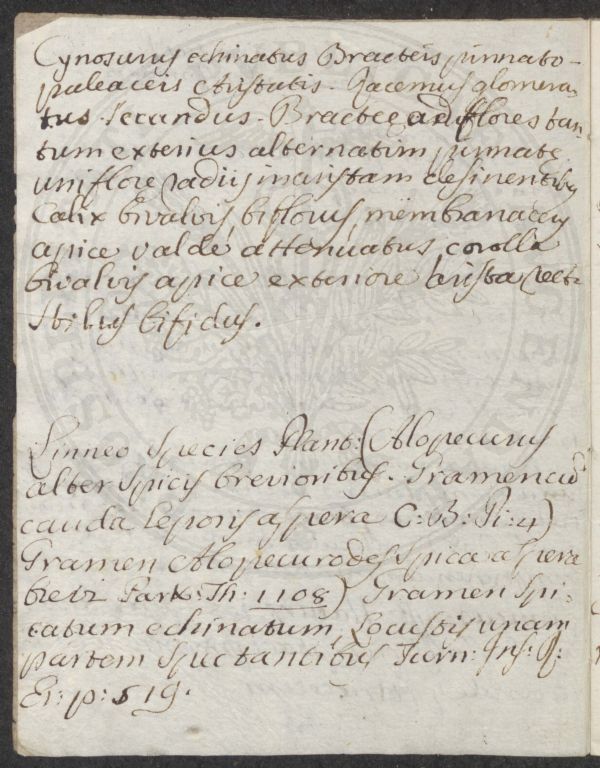 Cynosurus echinatus Bracteis pinnato-
paleaceis aristatis. Racemus glomera-
tus secundus. Bractee ad flores tan-
tum exterius alternatim pinnate
uniflore radiis in aristam desinentibus
Calix bivalvis, biflorus, membranaceus
apice valde attenuatus, corolla
bivalvis apice exteriore arista rect.
Stilus bifidus.
Linneo Species Plant: (Alopecurus
alter spicis brevioribus. Gramen cũ
cauda Leporis aspera C: B: Pi: 4)
Gramen Alopecurodes spica aspera
brevi Park: Th: 1108) Gramen Spi-
catum echinatum, Locustis unam
partem spectantibus Turn: Ins: R:
Er: p: 519.